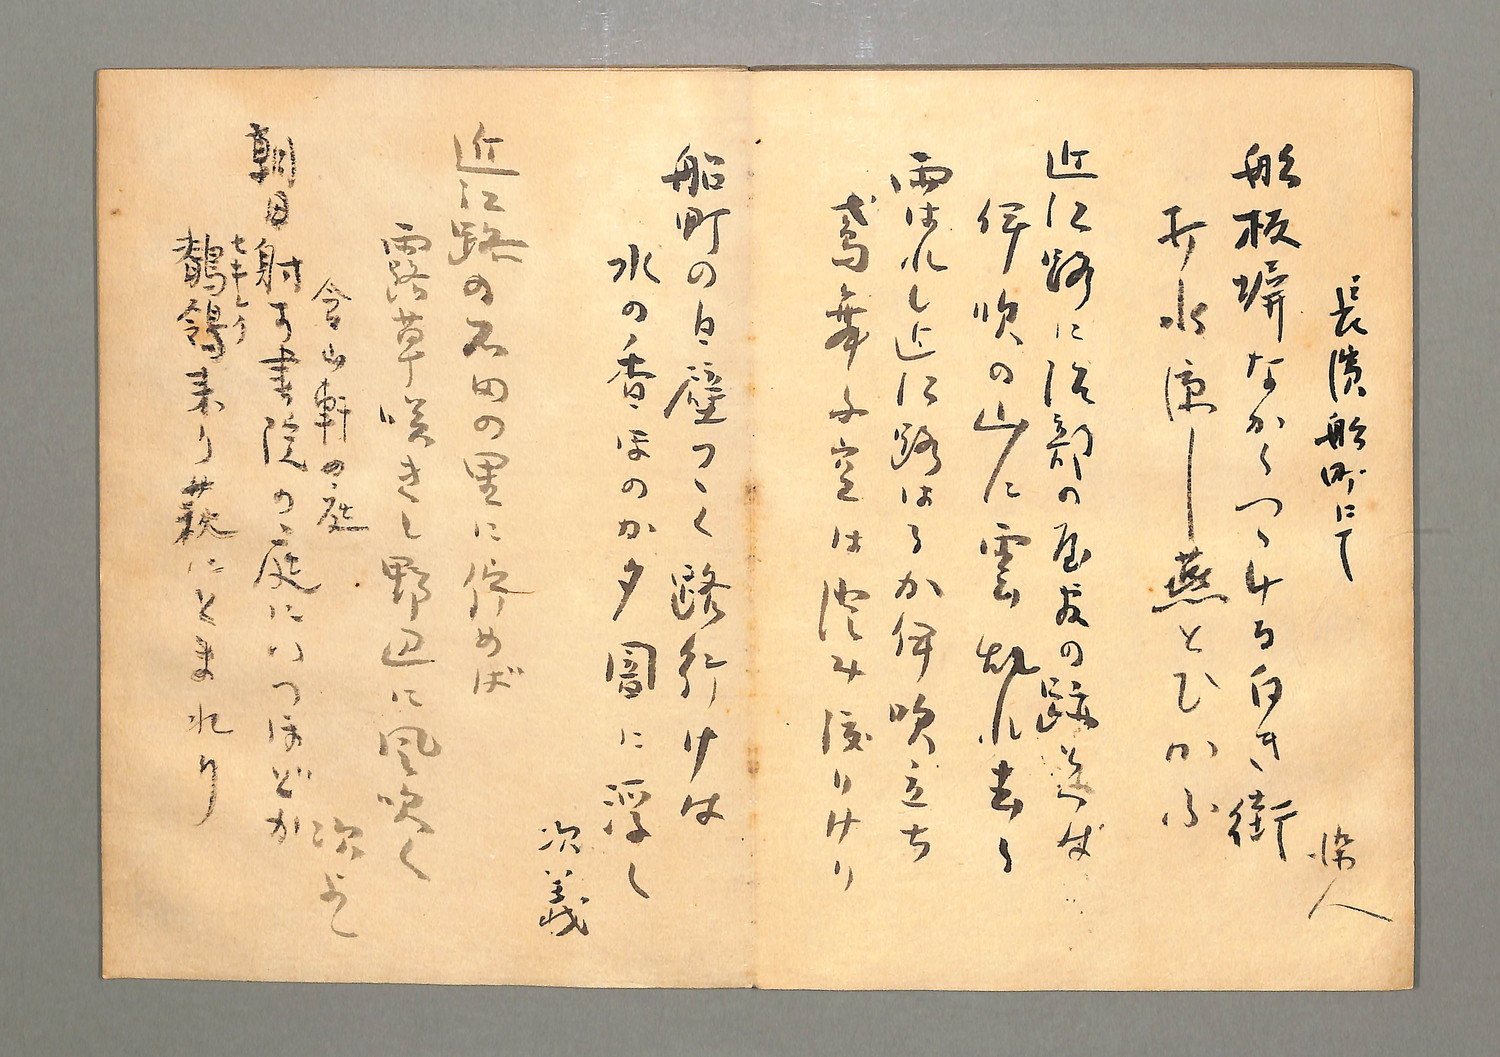 長濱船町にて
染人
船板塀なかくつゝける白き街
水涼し燕とひかふ
近江路に治部の屋敷の跡
伊吹の山に雲乱れ去る
雨はれし近江路はるか伊吹立ち
鳶舞ふ空は澄み渡りけり
船町の白壁つゝく路行けは
水の香ほのか夕闇に浮し
次義
近江路の石田の里に佇めば
露草咲きし野辺に風吹く
含山軒の庭
次よし
朝日射す書院の庭にいつほどか
鶺鴒来り萩にとまれり
セキレイ